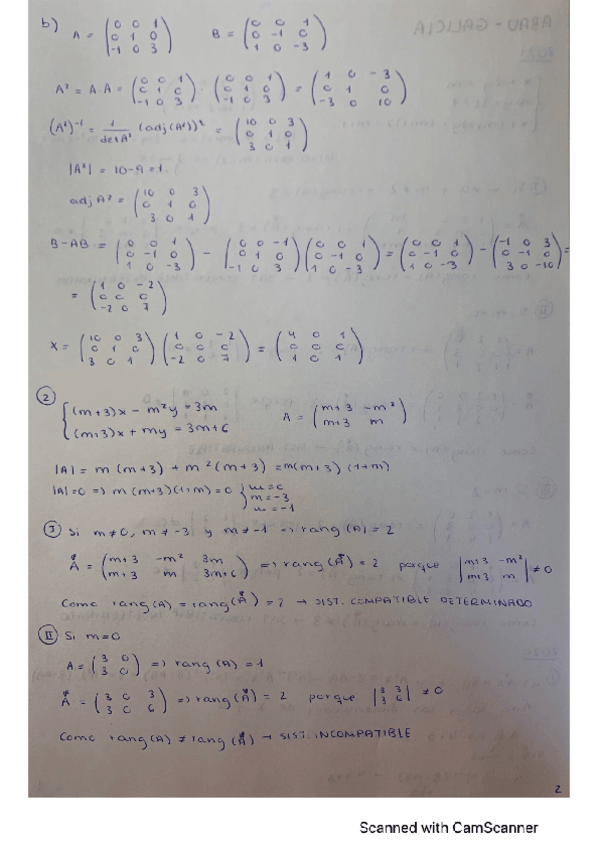 b) A = (0 0 1 / 0 1 0 / -1 0 3) B = (0 0 1 / 0 -1 0 / 1 0 -3)
A² = A·A = (0 0 1 / 0 1 0 / -1 0 3) · (0 0 1 / 0 1 0 / -1 0 3) = (1 0 -3 / 0 1 0 / -3 0 10)
(A²)⁻¹ = 1/det A² (adj(A²))ᵗ = (10 0 3 / 0 1 0 / 3 0 1)
|A²| = 10-9 = 1.
adj A² = (10 0 3 / 0 1 0 / 3 0 1)
B-AB = (0 0 1 / 0 -1 0 / 1 0 -3) - (0 0 -1 / 0 1 0 / -1 0 3) (0 0 1 / 0 -1 0 / 1 0 -3) = (0 0 1 / 0 -1 0 / 1 0 -3) - (-1 0 3 / 0 -1 0 / 3 0 -10) =
= (1 0 -2 / 0 0 0 / -2 0 7)
X = (10 0 3 / 0 1 0 / 3 0 1) (1 0 -2 / 0 0 0 / -2 0 7) = (4 0 1 / 0 0 0 / 1 0 1)
② {(m+3)x - m²y = 3m A = (m+3 -m² / m+3 m)
(m+3)x + my = 3m+6
|A| = m(m+3) + m²(m+3) = m(m+3)(1+m)
|A|=0 => m(m+3)(1+m)=0 {m=0 m=-3 m=-1
Ⓘ Si m≠0, m≠-3 y m≠-1 => rang(A)=2
A* = (m+3 -m² 3m / m+3 m 3m+6) => rang(A*) = 2 porque |m+3 -m² / m+3 m| ≠0
Como rang(A) = rang(A*) = 2 → SIST. COMPATIBLE DETERMINADO
Ⅱ Si m=0
A = (3 0 / 3 0) => rang(A) = 1
A* = (3 0 3 / 3 0 6) => rang(A*) = 2 porque |3 3 / 3 6| ≠0
Como rang(A) ≠ rang(A*) → SIST. INCOMPATIBLE
2
Scanned with CamScanner